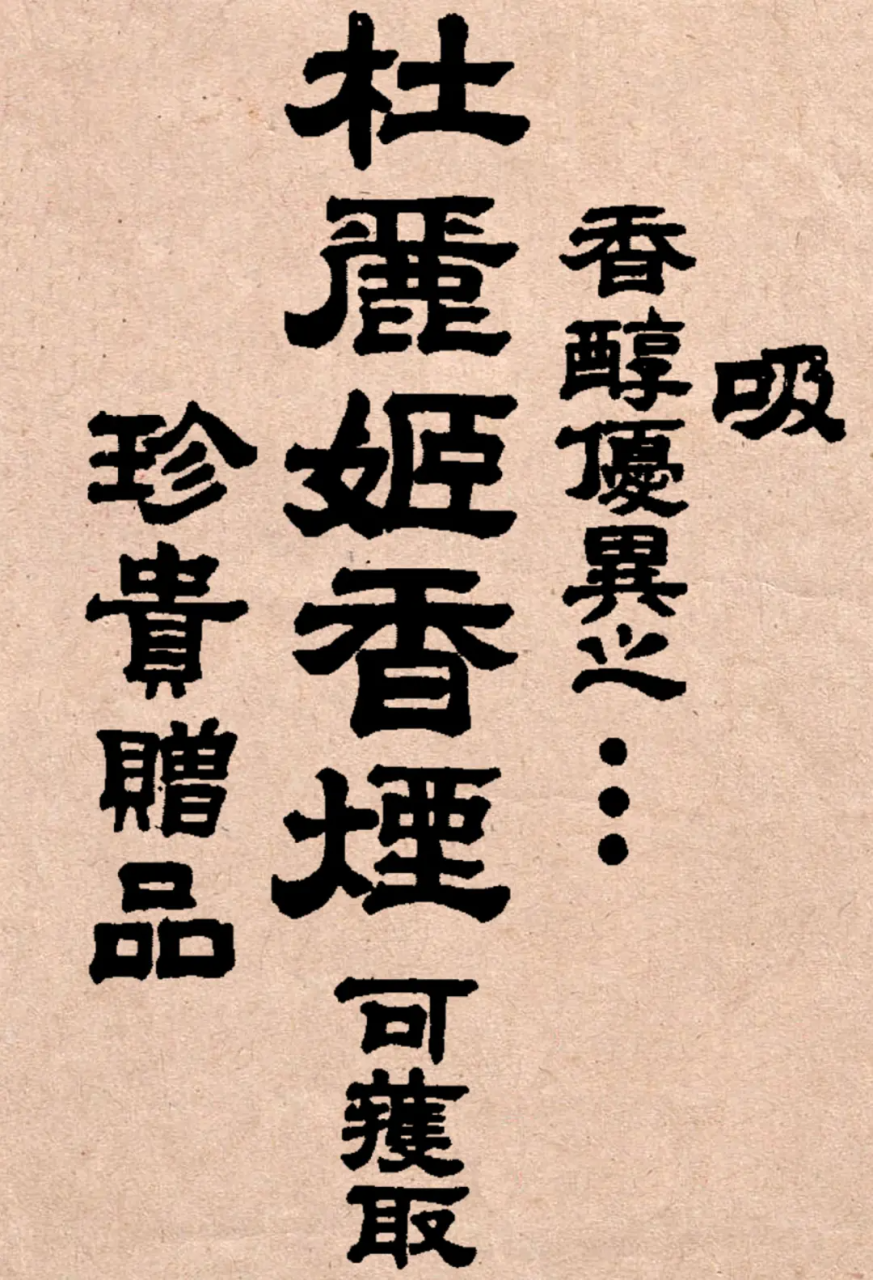 吸
香醇優異之•••
杜麗姬香煙可獲取
珍貴贈品